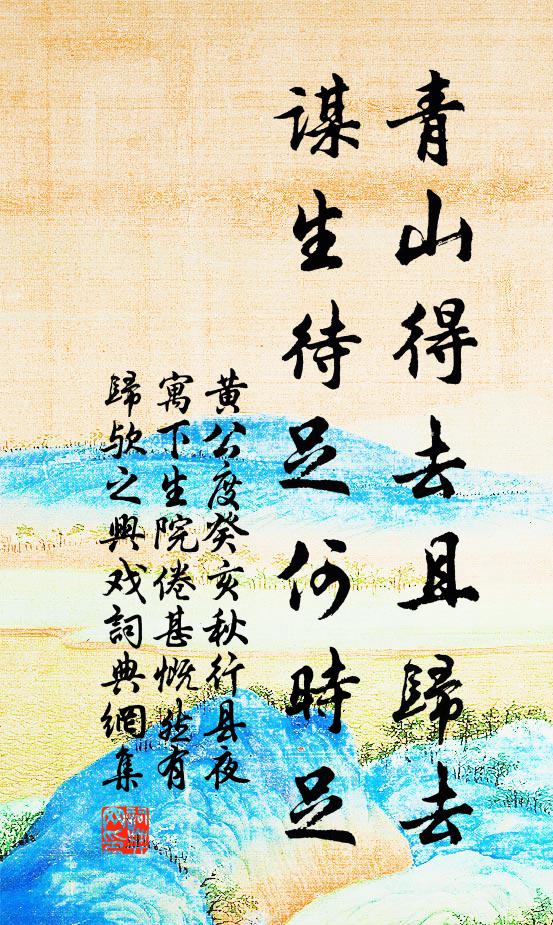 青山得去且歸去
謀生待足何時足
黄公度癸亥秋行县夜
寓下生院倦甚慨然有
歸欤之興戏詞典網集